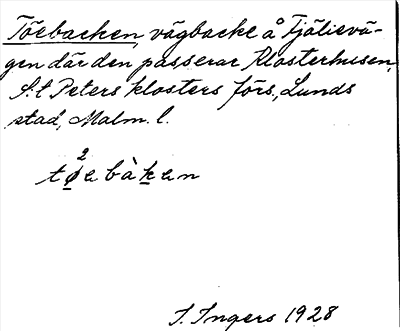 Töebacken, vägbacke å Fjälievä-
gen där den passerar Klosterhusen,
S:t Peters klosters förs., Lunds
stad, Malm. l.
tø²ebàken
I. Ingers 1928